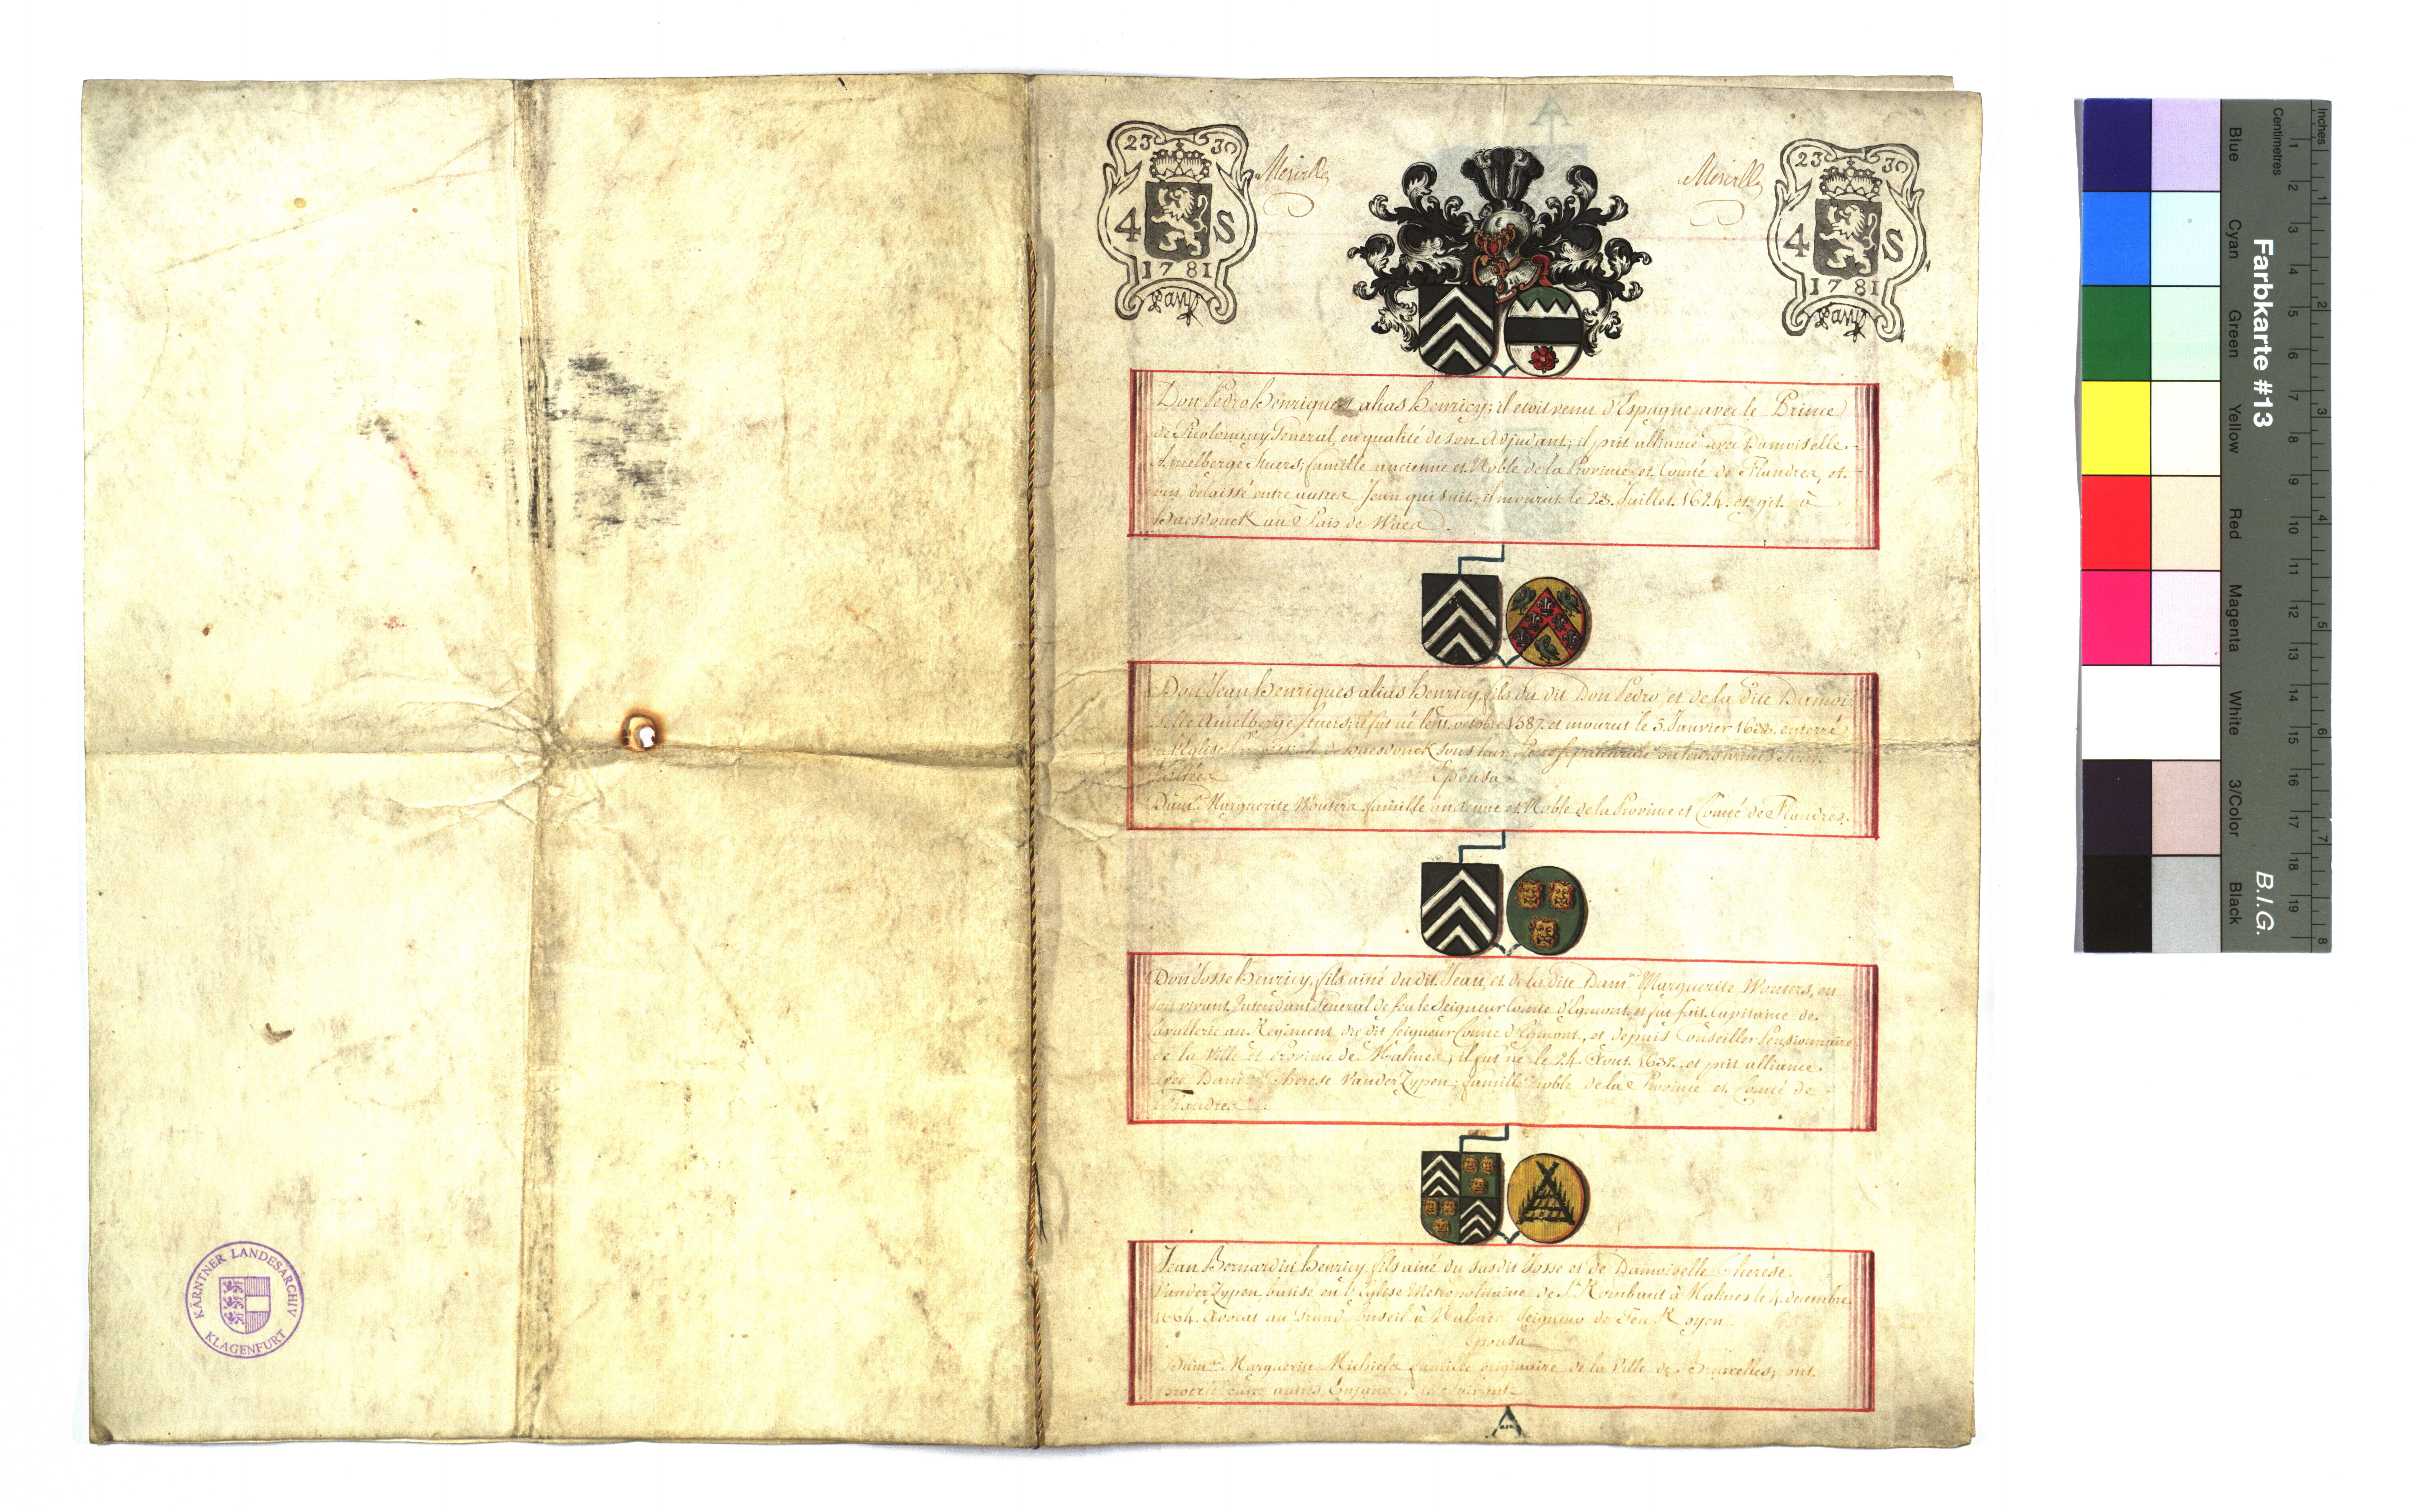 23 30
4 S
1781
23 30
4 S
1781
Don Pedro Henriques alias Henricy; il etoit venu d'Espagne avec le Prince
de Picolominy General, en qualité de son Adjudant; il prit alliance avec Damoiselle
Amelberge Stuers; famille ancienne et Noble de la Province et Comté de Flandres, et
ont delaissé entre autres Jean qui suit; il mourut le 28. Juillet. 1624. et git à
Haesdonck au Pais de Waes.
Don Jean Henriques alias Henricy, fils du dit Don Pedro et de la dite Damoi-
selle Amelberge Stuers; il fut né le 11. octobre 1587. et mourut le 5. Janvier enterré
en l'Eglise de Haesdonck sous leur
Epousa
Dam.lle Marguerite Wouters famille ancienne et Noble de la Province et Comté de Flandres.
Don Josse Henricy, fils ainé du dit Jean, et de la dite Dam.lle Marguerite Wouters, en
son vivant Intendant General de feu le Seigneur Comte d'Egmont, et fut fait Capitaine de
Cavallerie au Regiment du dit Seigneur Comte d'Egmont, et depuis Conseiller Pensionnaire
de la Ville et Province de Malines; il fut né le 24. Aout. 1632. et prit alliance
avec Dam.lle Therese Vander Zypen; famille noble de la Province et Comté de
Flandres.
Jean Bernardin Henricy fils ainé du susdit Josse et de Damoiselle Therese
Vander Zypen, batisé en l'Eglise Metropolitaine de St. Rombaut à Malines le 4. decembre
1664. Avocat au Grand Conseil à Malines Seigneur de Ten Royen.
Epousa
Dam.lle Marguerite Michiels famille originaire de la Ville de Bruxelles; ont
procréé entre autres Enfans, le suivant
A
KÄRNTNER LANDESARCHIV
KLAGENFURT
Farbkarte #13
B.I.G.
Inches
Centimetres
Blue
Cyan
Green
Yellow
Red
Magenta
White
3/Color
Black
1 2 3 4 5 6 7 8 9 10 11 12 13 14 15 16 17 18 19
1 2 3 4 5 6 7 8